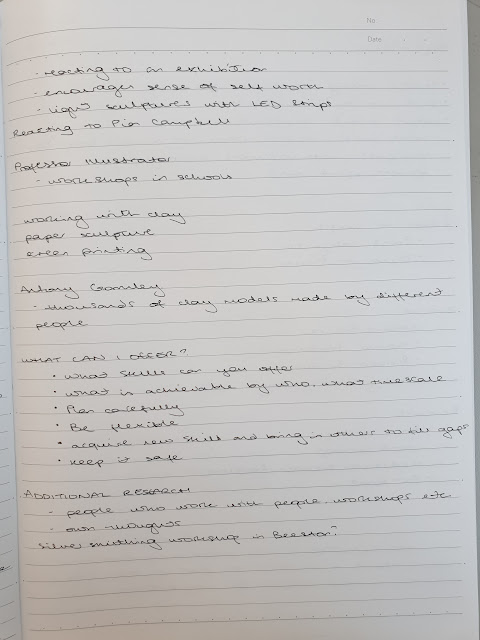 No
Date
- reacting to an exhibition
- encourages sense of self worth
- light sculptures with LED strips
Reacting to Pier Campbell
Professor Illustrator
- workshops in schools
working with clay
paper sculpture
screen printing
Antony Gormley
- thousands of clay models made by different
people
WHAT CAN I OFFER?
• what skills can you offer
• what is achievable by who, what timescale
• Plan carefully
• Be flexible
• acquire new skill and bring in others to fill gaps
• keep it safe
ADDITIONAL RESEARCH
- people who work with people. workshops etc
- own thoughts
silver smithing workshop in Beeston?